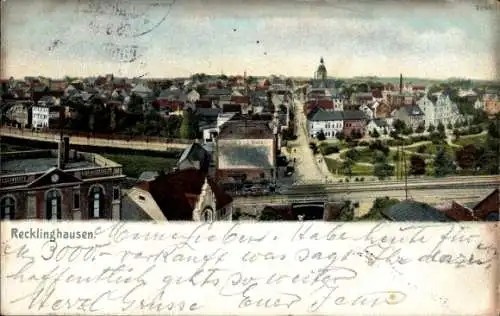 Recklinghausen.
Meine Lieben. Habe heute für
3000.- verkauft was sagt Ihr dazu
hoffentlich geht's so weiter
Herzl. Grüsse Euer